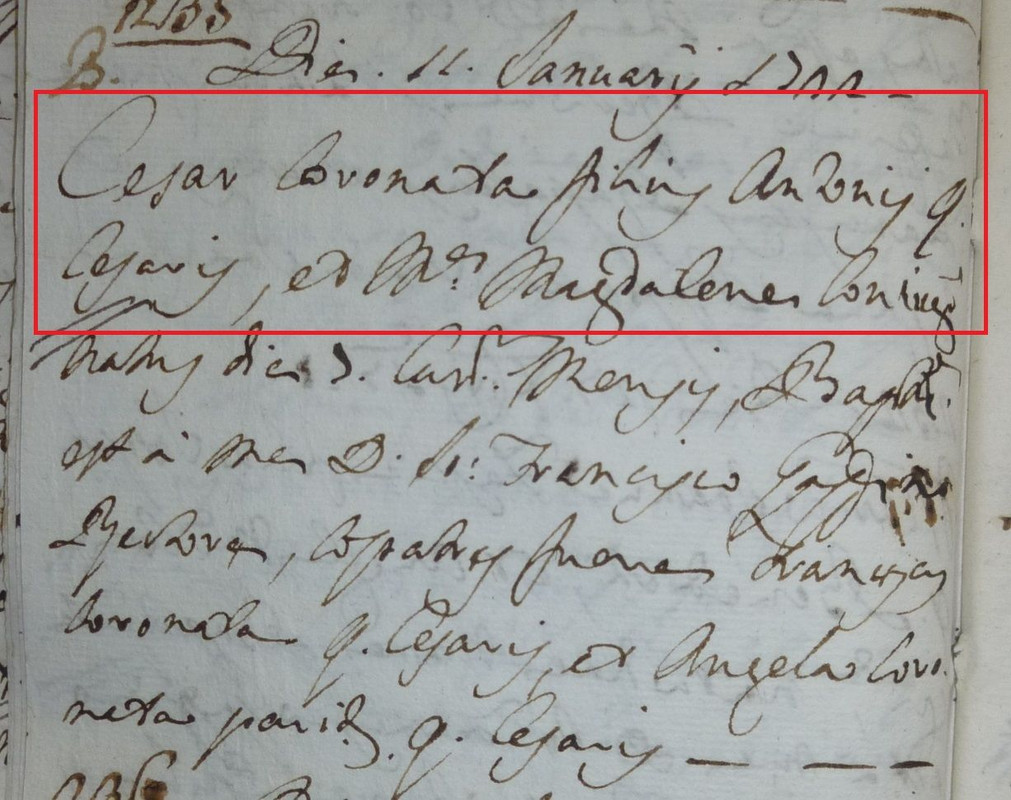 1235
B. Die. 11. Januarij 1722 –
Cesar Coronata filius Antonij q.
Cesaris, et Mᵃ: Magdalene Coniug̃
natus die 7. Curᵗ: Mensis, Bapt.
est à me D. Io: Francisco
Rectore, Compatres fuere Franciscus
Coronata q. Cesaris, et Angela Coro
nata parit. q. Cesaris — — —
236